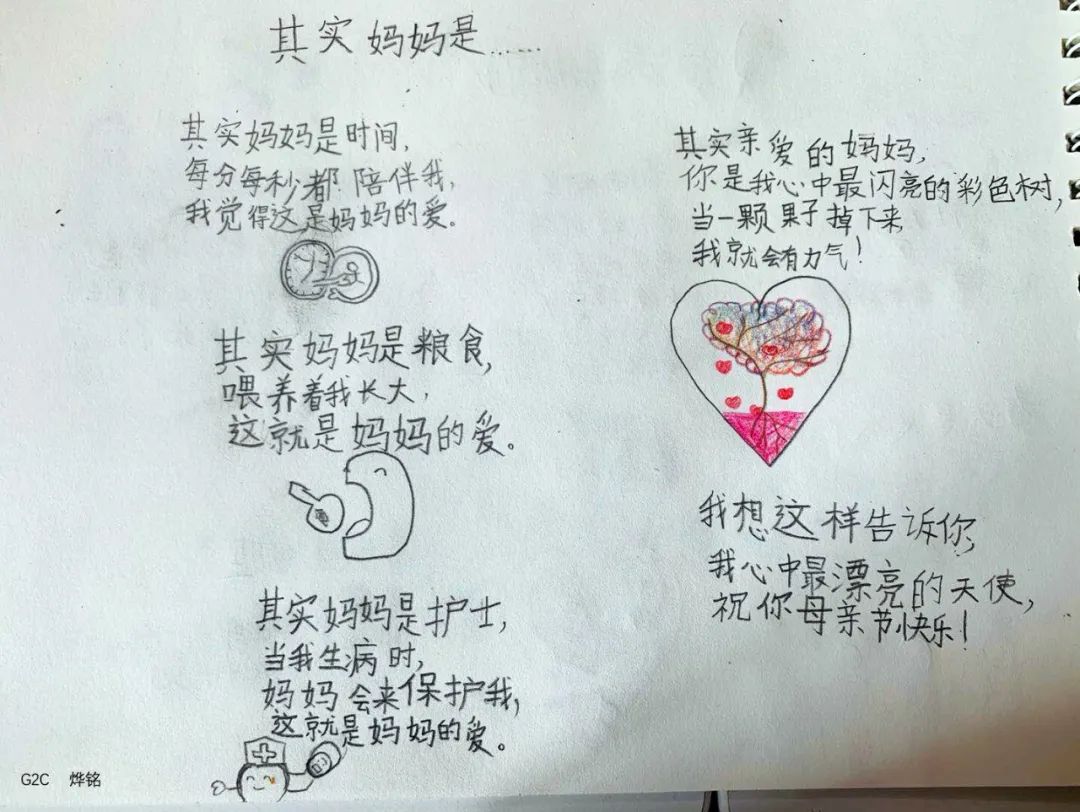 其实妈妈是……
其实妈妈是时间，
每分每秒都陪伴我，
我觉得这是妈妈的爱。
其实妈妈是粮食，
喂养着我长大，
这就是妈妈的爱。
其实妈妈是护士，
当我生病时，
妈妈会来保护我，
这就是妈妈的爱。
其实亲爱的妈妈，
你是我心中最闪亮的彩色树，
当一颗果子掉下来
我就会有力气！
我想这样告诉你，
我心中最漂亮的天使，
祝你母亲节快乐！
G2C 烨铭